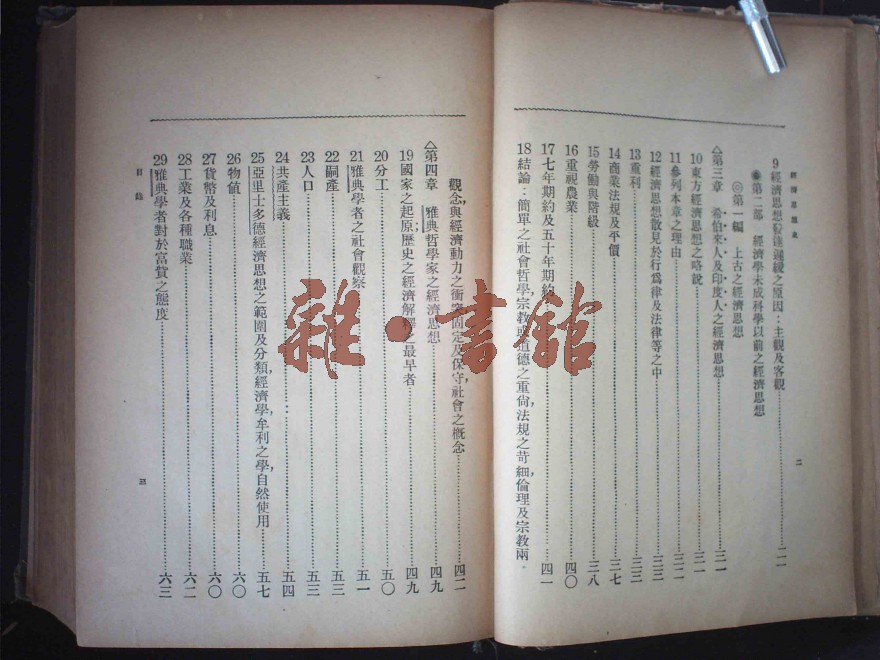 經濟思想史
二
9 經濟思想發達遲緩之原因：主觀及客觀……二一
第二部 經濟學未成科學以前之經濟思想
◎第一編 上古之經濟思想
△第三章 希伯來人及印度人之經濟思想……三一
10 東方經濟思想之略說……三一
11 參列本章之理由……三二
12 經濟思想散見於行爲律及法律等之中……三三
13 重利……三三
14 商業法規及平價……三七
15 勞働與階級……三八
16 重視農業……四〇
17 七年期約及五十年期約……四一
18 結論：簡單之社會哲學，宗敎或道德之重尙，法規之苛細，倫理及宗敎兩
觀念，與經濟動力之衝突，固定及保守，社會之概念……四二
△第四章 雅典哲學家之經濟思想……四九
19 國家之起原；歷史之經濟解釋之最早者……四九
20 分工……五〇
21 雅典學者之社會觀察……五一
22 嗣產……五三
23 人口……五三
24 共產主義……五四
25 亞里士多德經濟思想之範圍及分類，經濟學，牟利之學，自然使用……五七
26 物値……六〇
27 貨幣及利息……六〇
28 工業及各種職業……六二
29 雅典學者對於富貨之態度……六三
目錄
三
雜·書館